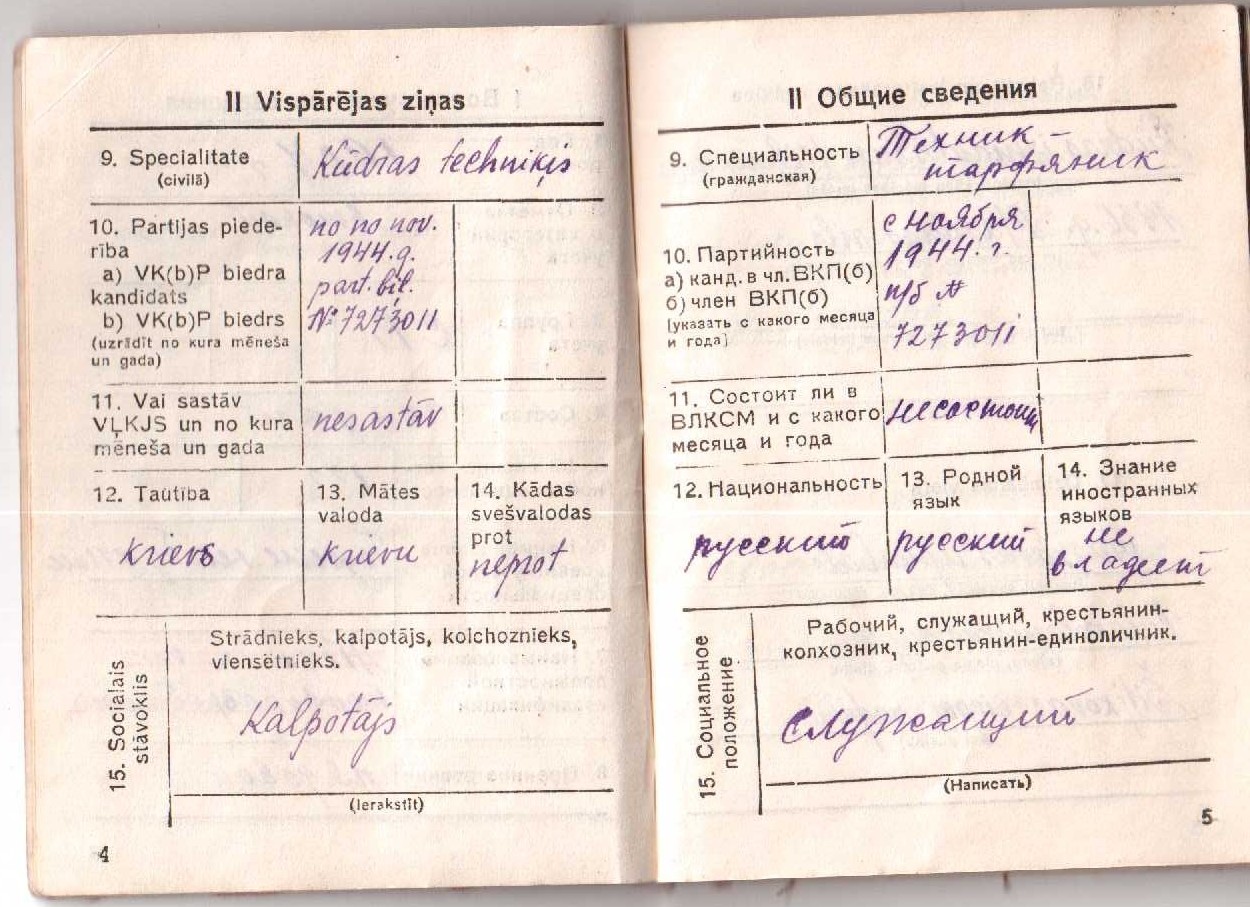 II Vispārējas ziņas
9. Specialitate
(civilā)
Kūdras techniķis
10. Partijas piede-
rība
a) VK(b)P biedra
kandidats
b) VK(b)P biedrs
(uzrādīt no kura mēneša
un gada)
no no nov.
1944.g.
part. bil.
№ 7273011
11. Vai sastāv
VĻKJS un no kura
mēneša un gada
nesastāv
12. Tautība
krievs
13. Mātes
valoda
krievu
14. Kādas
svešvalodas
prot
neprot
15. Socialais
stāvoklis
Strādnieks, kalpotājs, kolchoznieks,
viensētnieks.
Kalpotājs
(Ierakstīt)
4
II Общие сведения
9. Специальность
(гражданская)
Техник —
тарфяник
10. Партийность
а) канд. в чл. ВКП(б)
б) член ВКП(б)
(указать с какого месяца
и года)
с ноября
1944. г.
п/б №
7273011
11. Состоит ли в
ВЛКСМ и с какого
месяца и года
несостоит
12. Национальность
русский
13. Родной
язык
русский
14. Знание
иностранных
языков
не
владеет
15. Социальное
положение
Рабочий, служащий, крестьянин-
колхозник, крестьянин-единоличник.
служащий
(Написать)
5